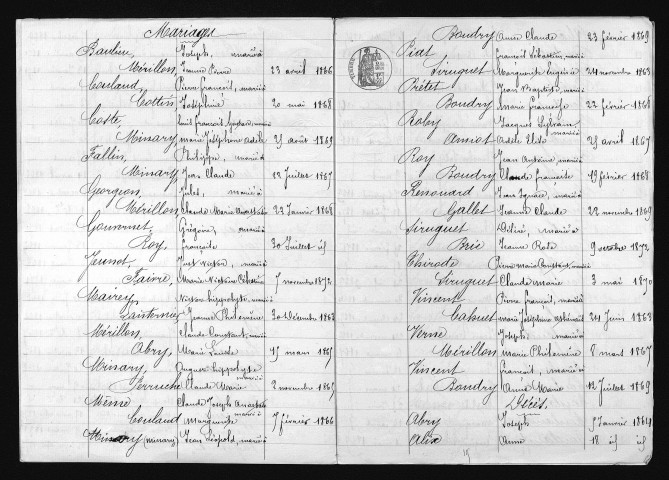 Mariages
Baulieu, Joseph, marié à
Mérillon, Jeanne Pierre 23 avril 1866
Coulaud, Pierre françois, marié à
Cottin, Joséphine 20 mai 1868
Coste, Emile françois, marié à
Minary, Marie Joséphine Adèle 25 août 1869
Fallin, Philippe, marié à
Minary, Jean Claude 12 Juillet 1867
Georgeon, Jules, marié à
Mérillon, Claude Marie 22 Janvier 1868
Gouvonet, Grégoire, marié à
Roy, françoise 30 Juillet id
Jeunot, Just victor, marié à
Faivre, Marie Victoire 5 novembre 1872
Mairey, Victor hippolyte, marié à
Jeanne Philomène 30 décembre 1863
Mérillon, Claude Constant, marié à
Abry, Marie Louise 15 mars 1865
Minary, hippolyte marié à
Perruche Claude Marie 2 novembre 1865
Même Claude Joseph marié à
Coulaud Marguerite 7 février 1866
Minary (minary) Jean Léopold, marié à
Boudry Anne Claude 23 février 1869
Piat françois Sébastien, marié à
Siruguet Marguerite Eugénie 24 novembre 1863
Prétet Jean Baptiste, marié à
Boudry Marie françoise 22 février 1868
Roby Jacques Sylvain, marié à
Amiot Adèle Elisa 25 avril 1867
Roy Jean Antoine, marié à
Boudry Claude françoise 19 février 1868
Renouard Jean Ignace, marié à
Gallet Jeanne Claude 22 novembre 1869
Siruguet Désiré, marié à
Brié Jeanne Rose 9 octobre 1872
Thirode Pierre Marie Constant, marié à
Siruguet Claude Marie 3 mai 1870
Vincent Pierre françois, marié à
Cabuet Marie Joséphine 24 Juin 1863
Verne Joseph, marié à
Mérillon Marie Philomène 8 mart 1867
Vincent françois, marié à
Boudry Anne Marie 12 Juillet 1869
Décès.
Abry Joseph 5 Janvier 1864
Alix Anne 18 id id